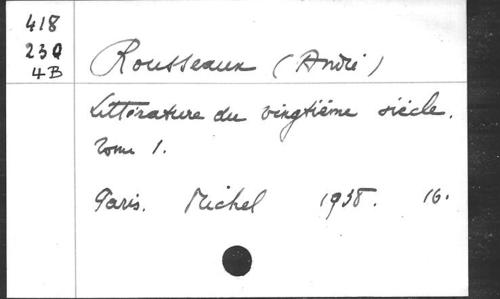 418
230
4B
Rousseaux (André)
Littérature du vingtième siècle.
Tome 1.
Paris. Michel 1938. 16.